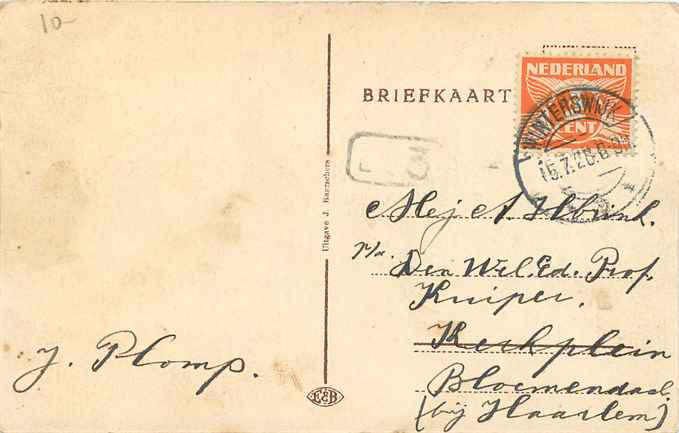 10-
BRIEFKAART
NEDERLAND
CENT
WINTERSWIJK
Uitgave J.
Mej A. Hbrink.
p/a. Den Wel.Ed. Prof.
Kuiper.
Kerkplein
Bloemendaal
(bij Haarlem)
J. Plomp.
E&B